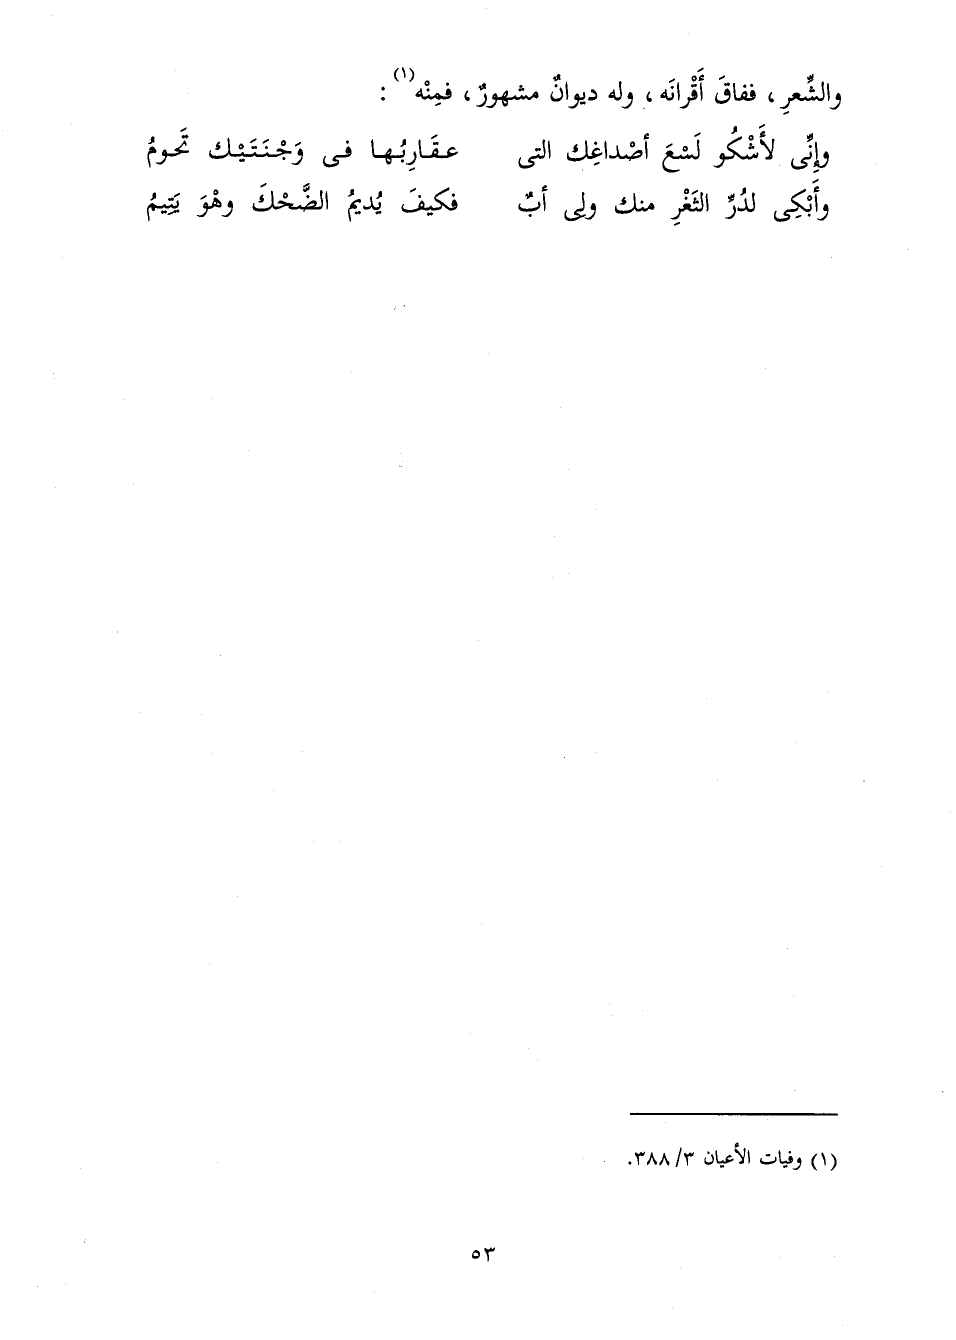 والشِّعرِ ، ففاقَ أَقْرانَه ، وله ديوانٌ مشهورٌ ، فمِنْه(١) :
وإِنِّى لأَشْكُو لَسْعَ أصْداغِك التى عقَارِبُها فى وَجْنَتَيْك تَحومُ
وأَبْكِى لدُرِّ الثَغْرِ منك ولِى أبٌ فكيفَ يُديمُ الضَّحْكَ وهْوَ يَتِيمُ
(١) وفيات الأعيان ٣/ ٣٨٨.
٥٣